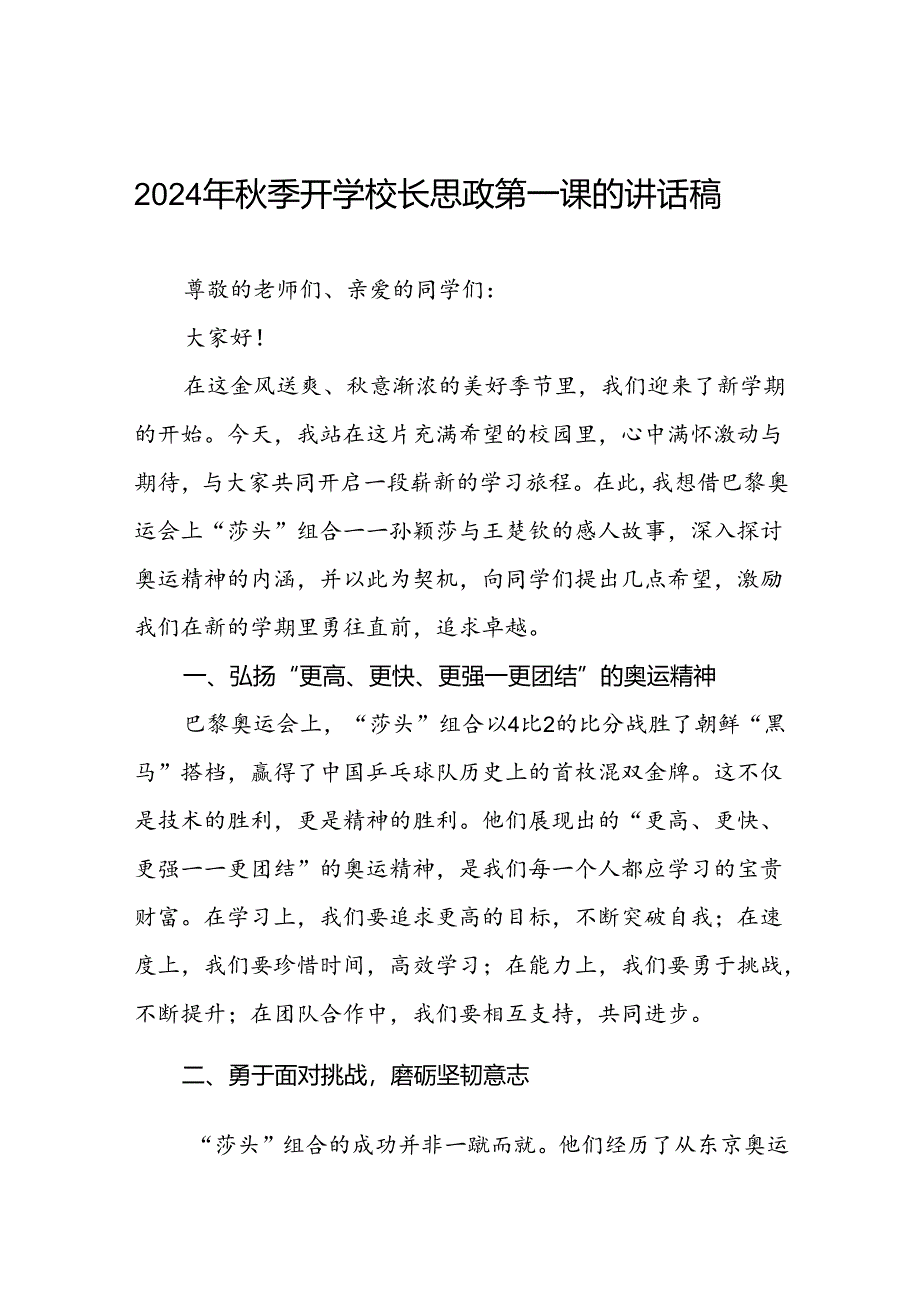 2024年秋季开学校长思政第一课的讲话稿
尊敬的老师们、亲爱的同学们：
大家好！
在这金风送爽、秋意渐浓的美好季节里，我们迎来了新学期
的开始。今天，我站在这片充满希望的校园里，心中满怀激动与
期待，与大家共同开启一段崭新的学习旅程。在此,我想借巴黎奥
运会上“莎头”组合一一孙颖莎与王楚钦的感人故事，深入探讨
奥运精神的内涵，并以此为契机，向同学们提出几点希望，激励
我们在新的学期里勇往直前，追求卓越。
一、弘扬“更高、更快、更强一更团结”的奥运精神
巴黎奥运会上，“莎头”组合以4比2的比分战胜了朝鲜“黑
马”搭档，赢得了中国乒乓球队历史上的首枚混双金牌。这不仅
是技术的胜利，更是精神的胜利。他们展现出的“更高、更快、
更强一一更团结”的奥运精神，是我们每一个人都应学习的宝贵
财富。在学习上，我们要追求更高的目标，不断突破自我；在速
度上，我们要珍惜时间，高效学习；在能力上，我们要勇于挑战，
不断提升；在团队合作中，我们要相互支持，共同进步。
二、勇于面对挑战，磨砺坚韧意志
“莎头”组合的成功并非一蹴而就。他们经历了从东京奥运